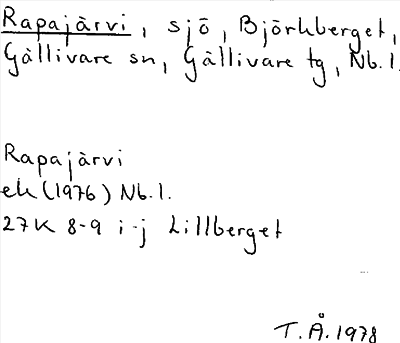 Rapajärvi, sjö, Björkberget,
Gällivare sn, Gällivare tg, Nb.l.
Rapajärvi
ek (1976) Nb.l.
27K 8-9 i-j Lillberget
T.Å. 1978